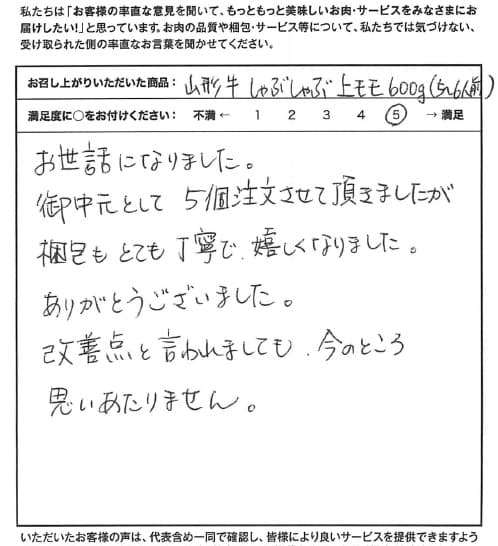 私たちは「お客様の率直な意見を聞いて、もっともっと美味しいお肉・サービスをみなさまにお
届けしたい!」と思っています。お肉の品質や梱包・サービス等について、私たちでは気づけない、
受け取られた側の率直なお言葉を聞かせてください。
お召し上がりいただいた商品: 山形牛 しゃぶしゃぶ 上モモ 600g(5~6人前)
満足度に○をお付けください: 不満 ← 1 2 3 4 5 → 満足
お世話になりました。
御中元として 5個注文させて頂きましたが
梱包も とても丁寧で、嬉しくなりました。
ありがとうございました。
改善点と言われましても、今のところ
思いあたりません。
いただいたお客様の声は、代表含め一同で確認し、皆様により良いサービスを提供できますよう